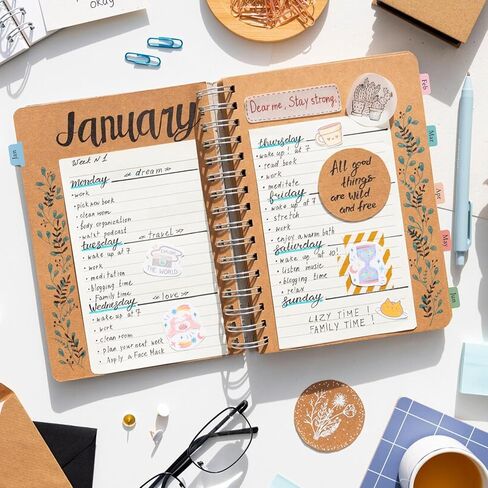 okay
January
Week N1
monday
dream
• work
• pick new book
• clean room
• body organization
• waist podcast
tuesday
travel
• wake up at 7
• work
• meditation
• blogging time
• Family time
THE WORLD
wednesday
love
• wake up at 7
• work
• clean room
• plan your next week
• Apply a Face Mask
Dear me, Stay strong.
thursday
• wake up! at 7
• read book
• work
• meditate
friday
• wake up at 7
• stretch
• work
• enjoy a warm bath
Saturday
• wake up at 10!
• listen music
• blogging time
• relax
Sunday
LAZY TIME!
FAMILY TIME!
All good
things
are wild
and free
Feb
Mar
Apr
May
Jun